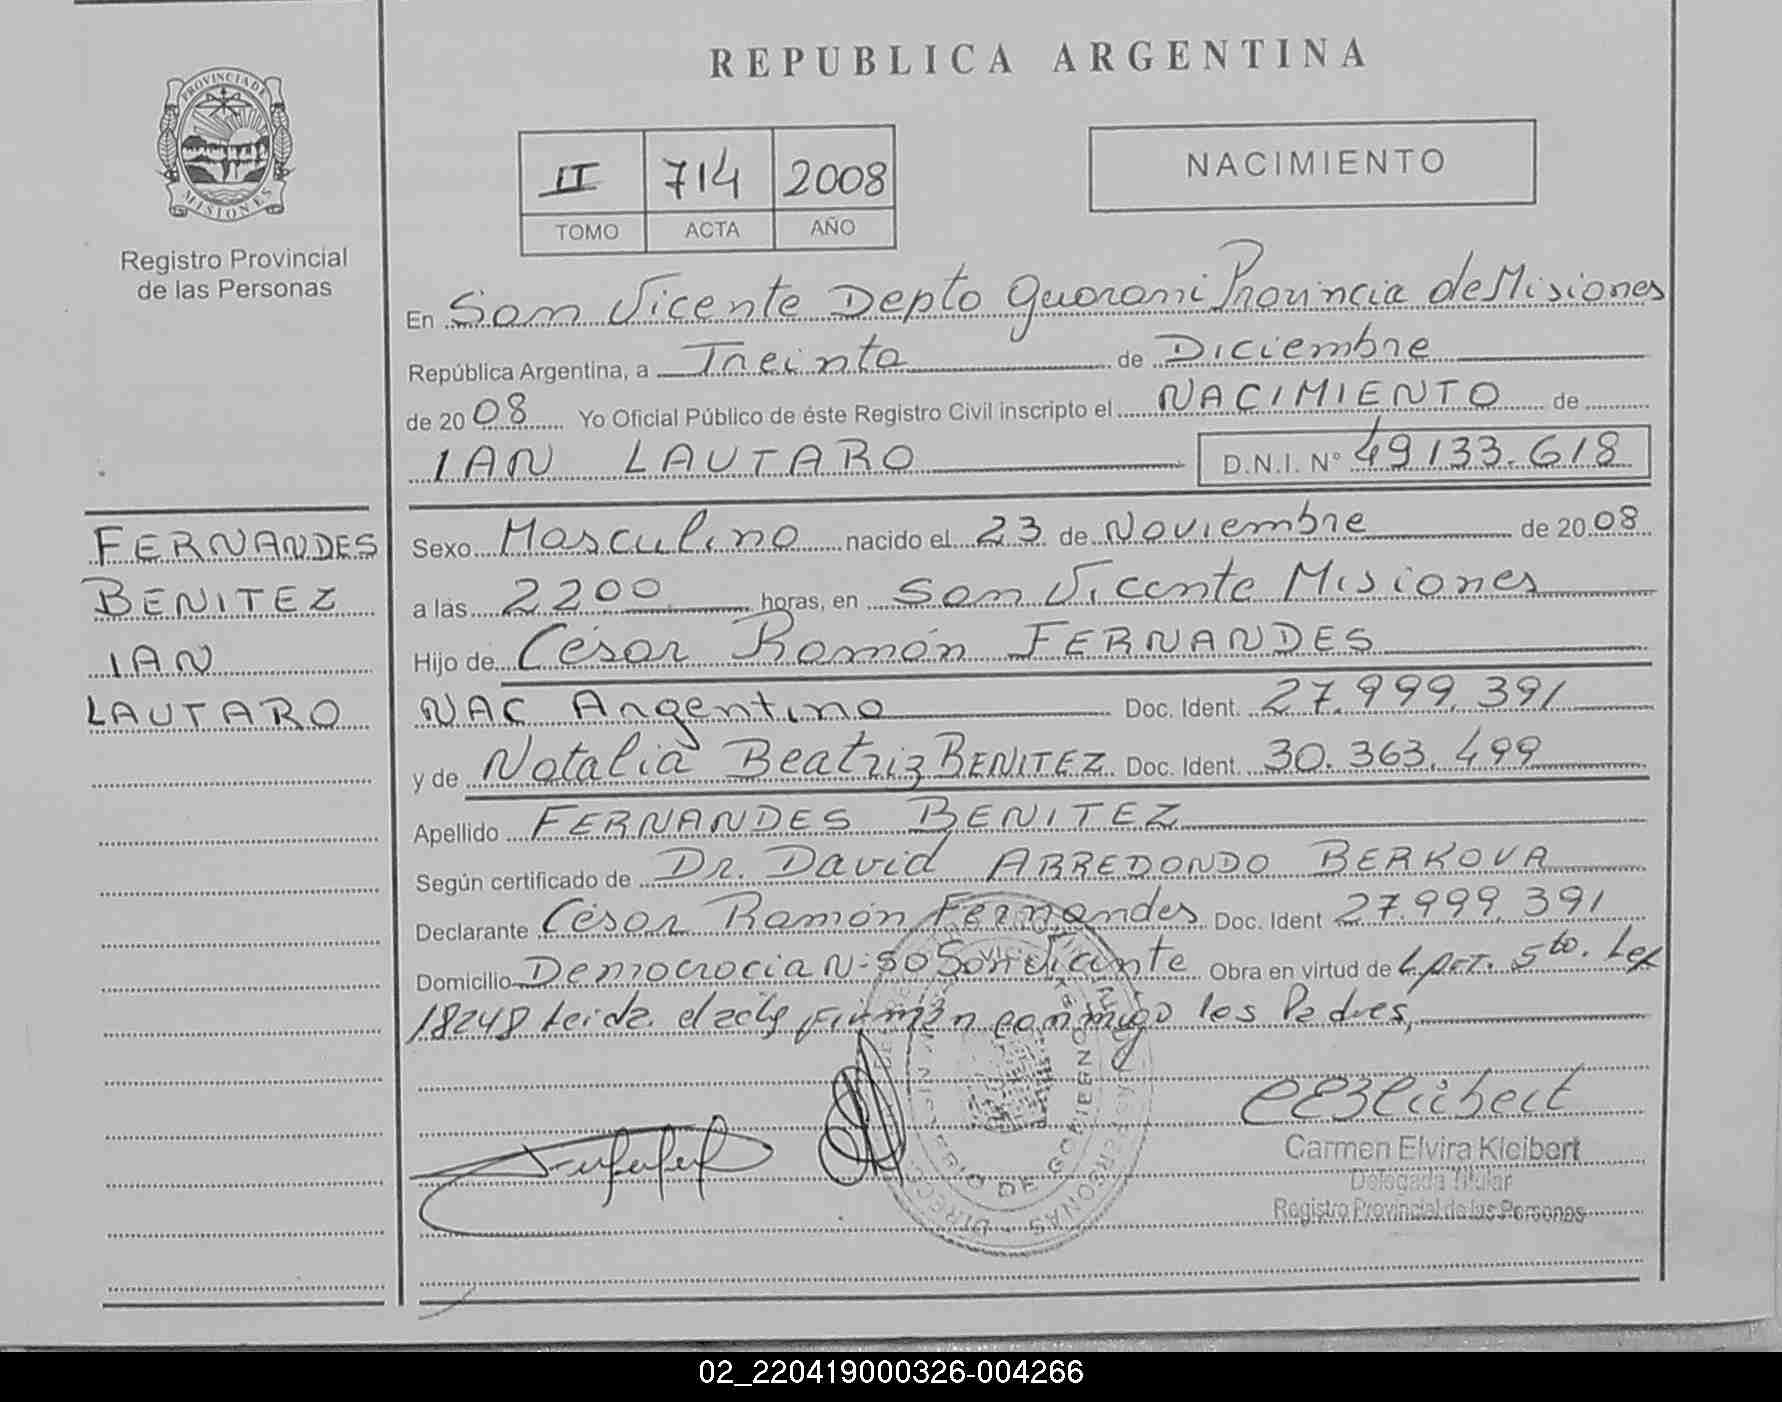 REPUBLICA ARGENTINA
PROVINCIA DE
MISIONES
Registro Provincial
de las Personas
II 714 2008
TOMO ACTA AÑO
NACIMIENTO
En San Vicente Depto Guarani Provincia de Misiones
República Argentina, a Treinta de Diciembre
de 2008 Yo Oficial Público de éste Registro Civil inscripto el NACIMIENTO de
IAN LAUTARO D.N.I. N° 49133.618
FERNANDES
BENITEZ
IAN
LAUTARO
Sexo Masculino nacido el 23 de Noviembre de 2008
a las 2200 horas, en San Vicente Misiones
Hijo de César Ramón FERNANDES
NAC Argentino Doc. Ident. 27.999.391
y de Natalia Beatriz BENITEZ Doc. Ident. 30.363.499
Apellido FERNANDES BENITEZ
Según certificado de Dr. David ARREDONDO BERKOVA
Declarante César Ramón Fernandes Doc. Ident 27.999.391
Domicilio Democracia N: 50 San Vicente Obra en virtud de 5to. Ley
18248 Leida firman conmigo los Padres,
Carmen Elvira Kleibert
Delegada Titular
Registro Provincial de las Personas
02_220419000326-004266